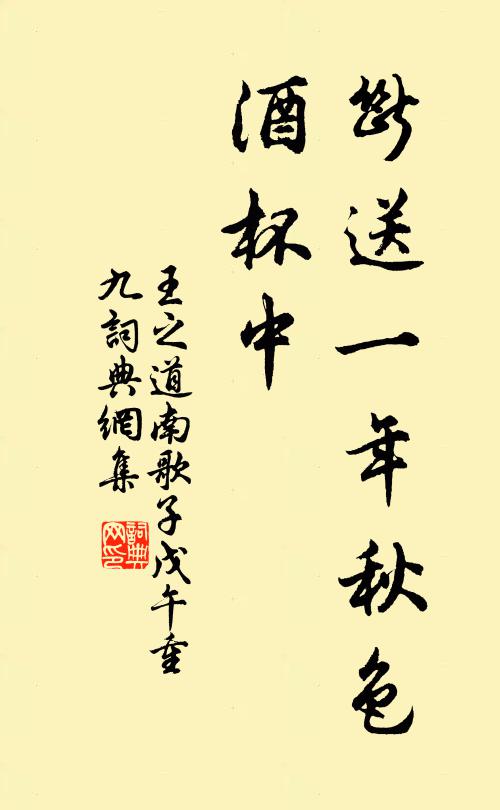 斷送一年秋色
酒杯中
王之道南歌子戊午重
九詞典網集
詞典
网印